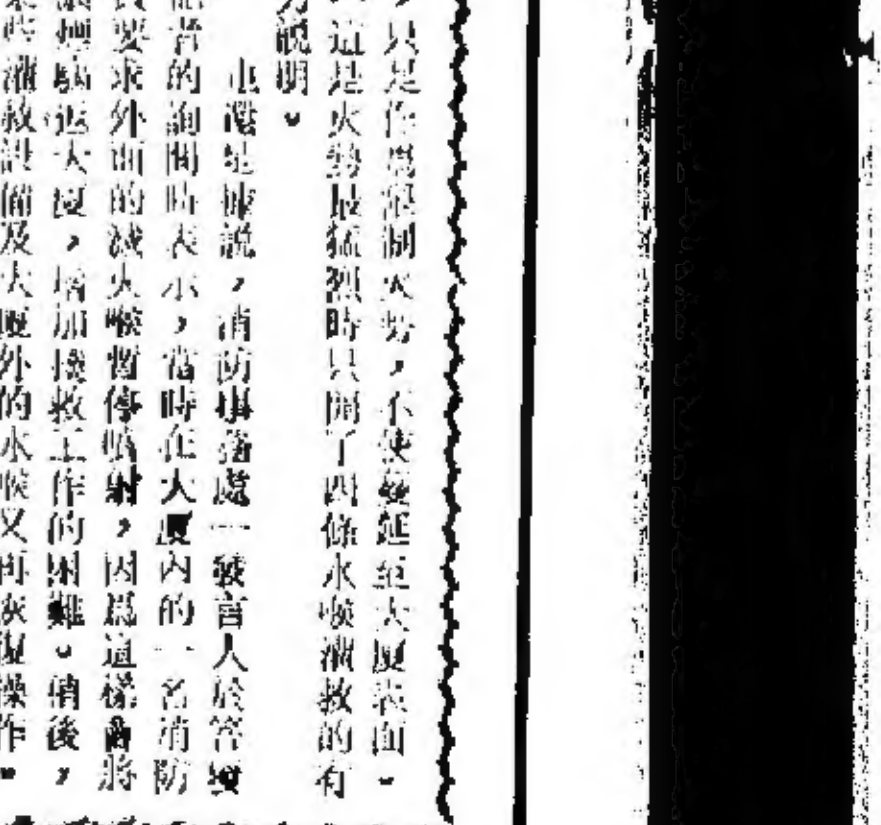 只是作爲控制火勢，不使蔓延至大厦表面。
這是火勢最猛烈時只開了四條水喉灌救的有
說明。
也還是據說，消防事務處一發言人於答覆
者的詢問時表示，當時在大厦內的一名消防
要求外面的滅火喉暫停噴射，因爲這樣會將
煙驅返大厦，增加拯救工作的困難。稍後，
灌救設備及大厦外的水喉又再恢復操作。